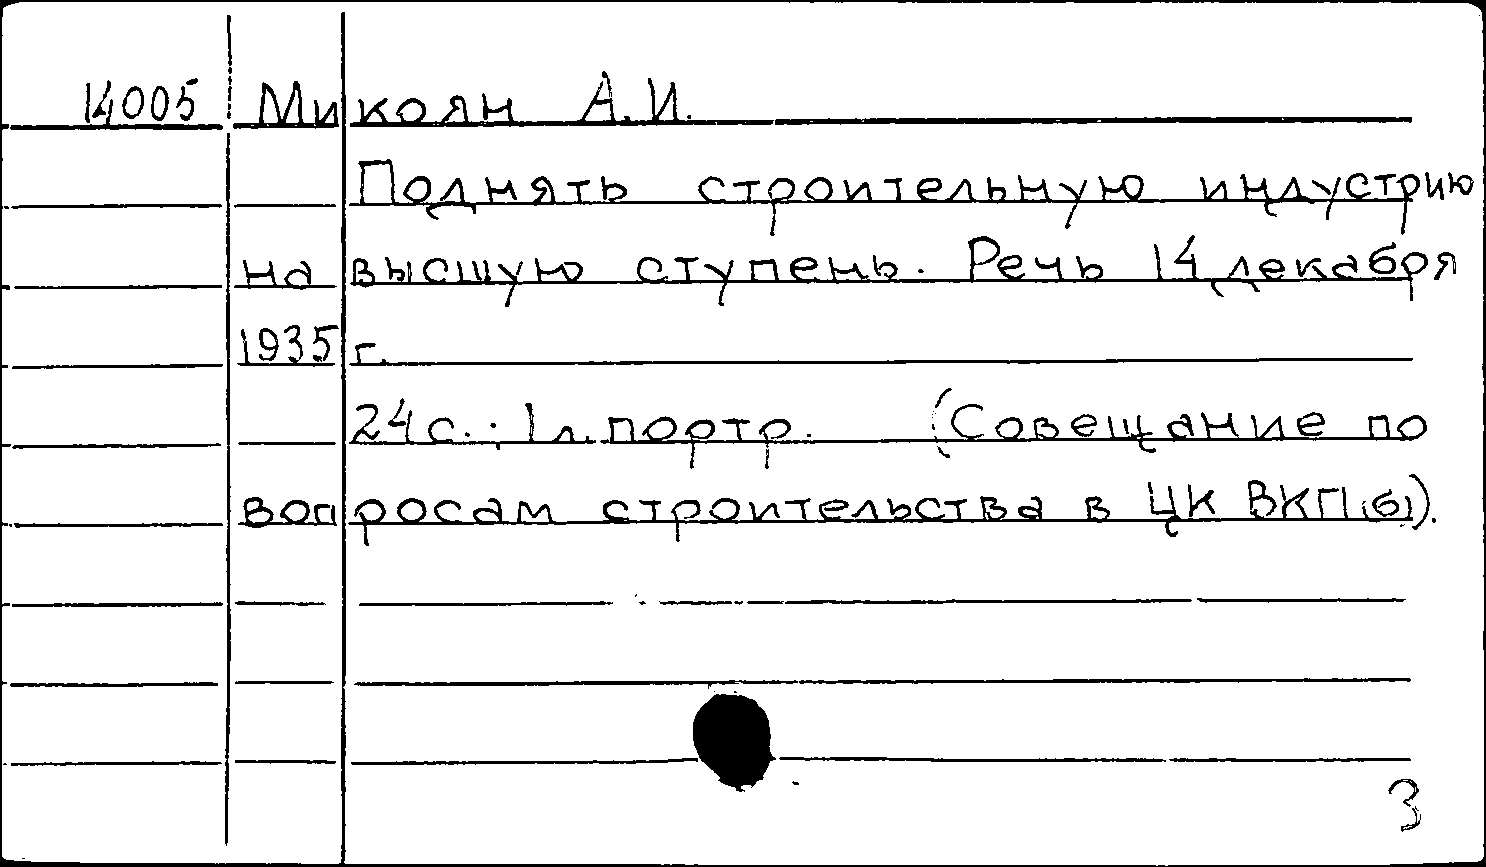 14005 Микоян А.И.
Поднять строительную индустрию
на высшую ступень. Речь 14 декабря
1935 г.
24 с.; 1 л. портр. (Совещание по
вопросам строительства в ЦК ВКП(б)).
3